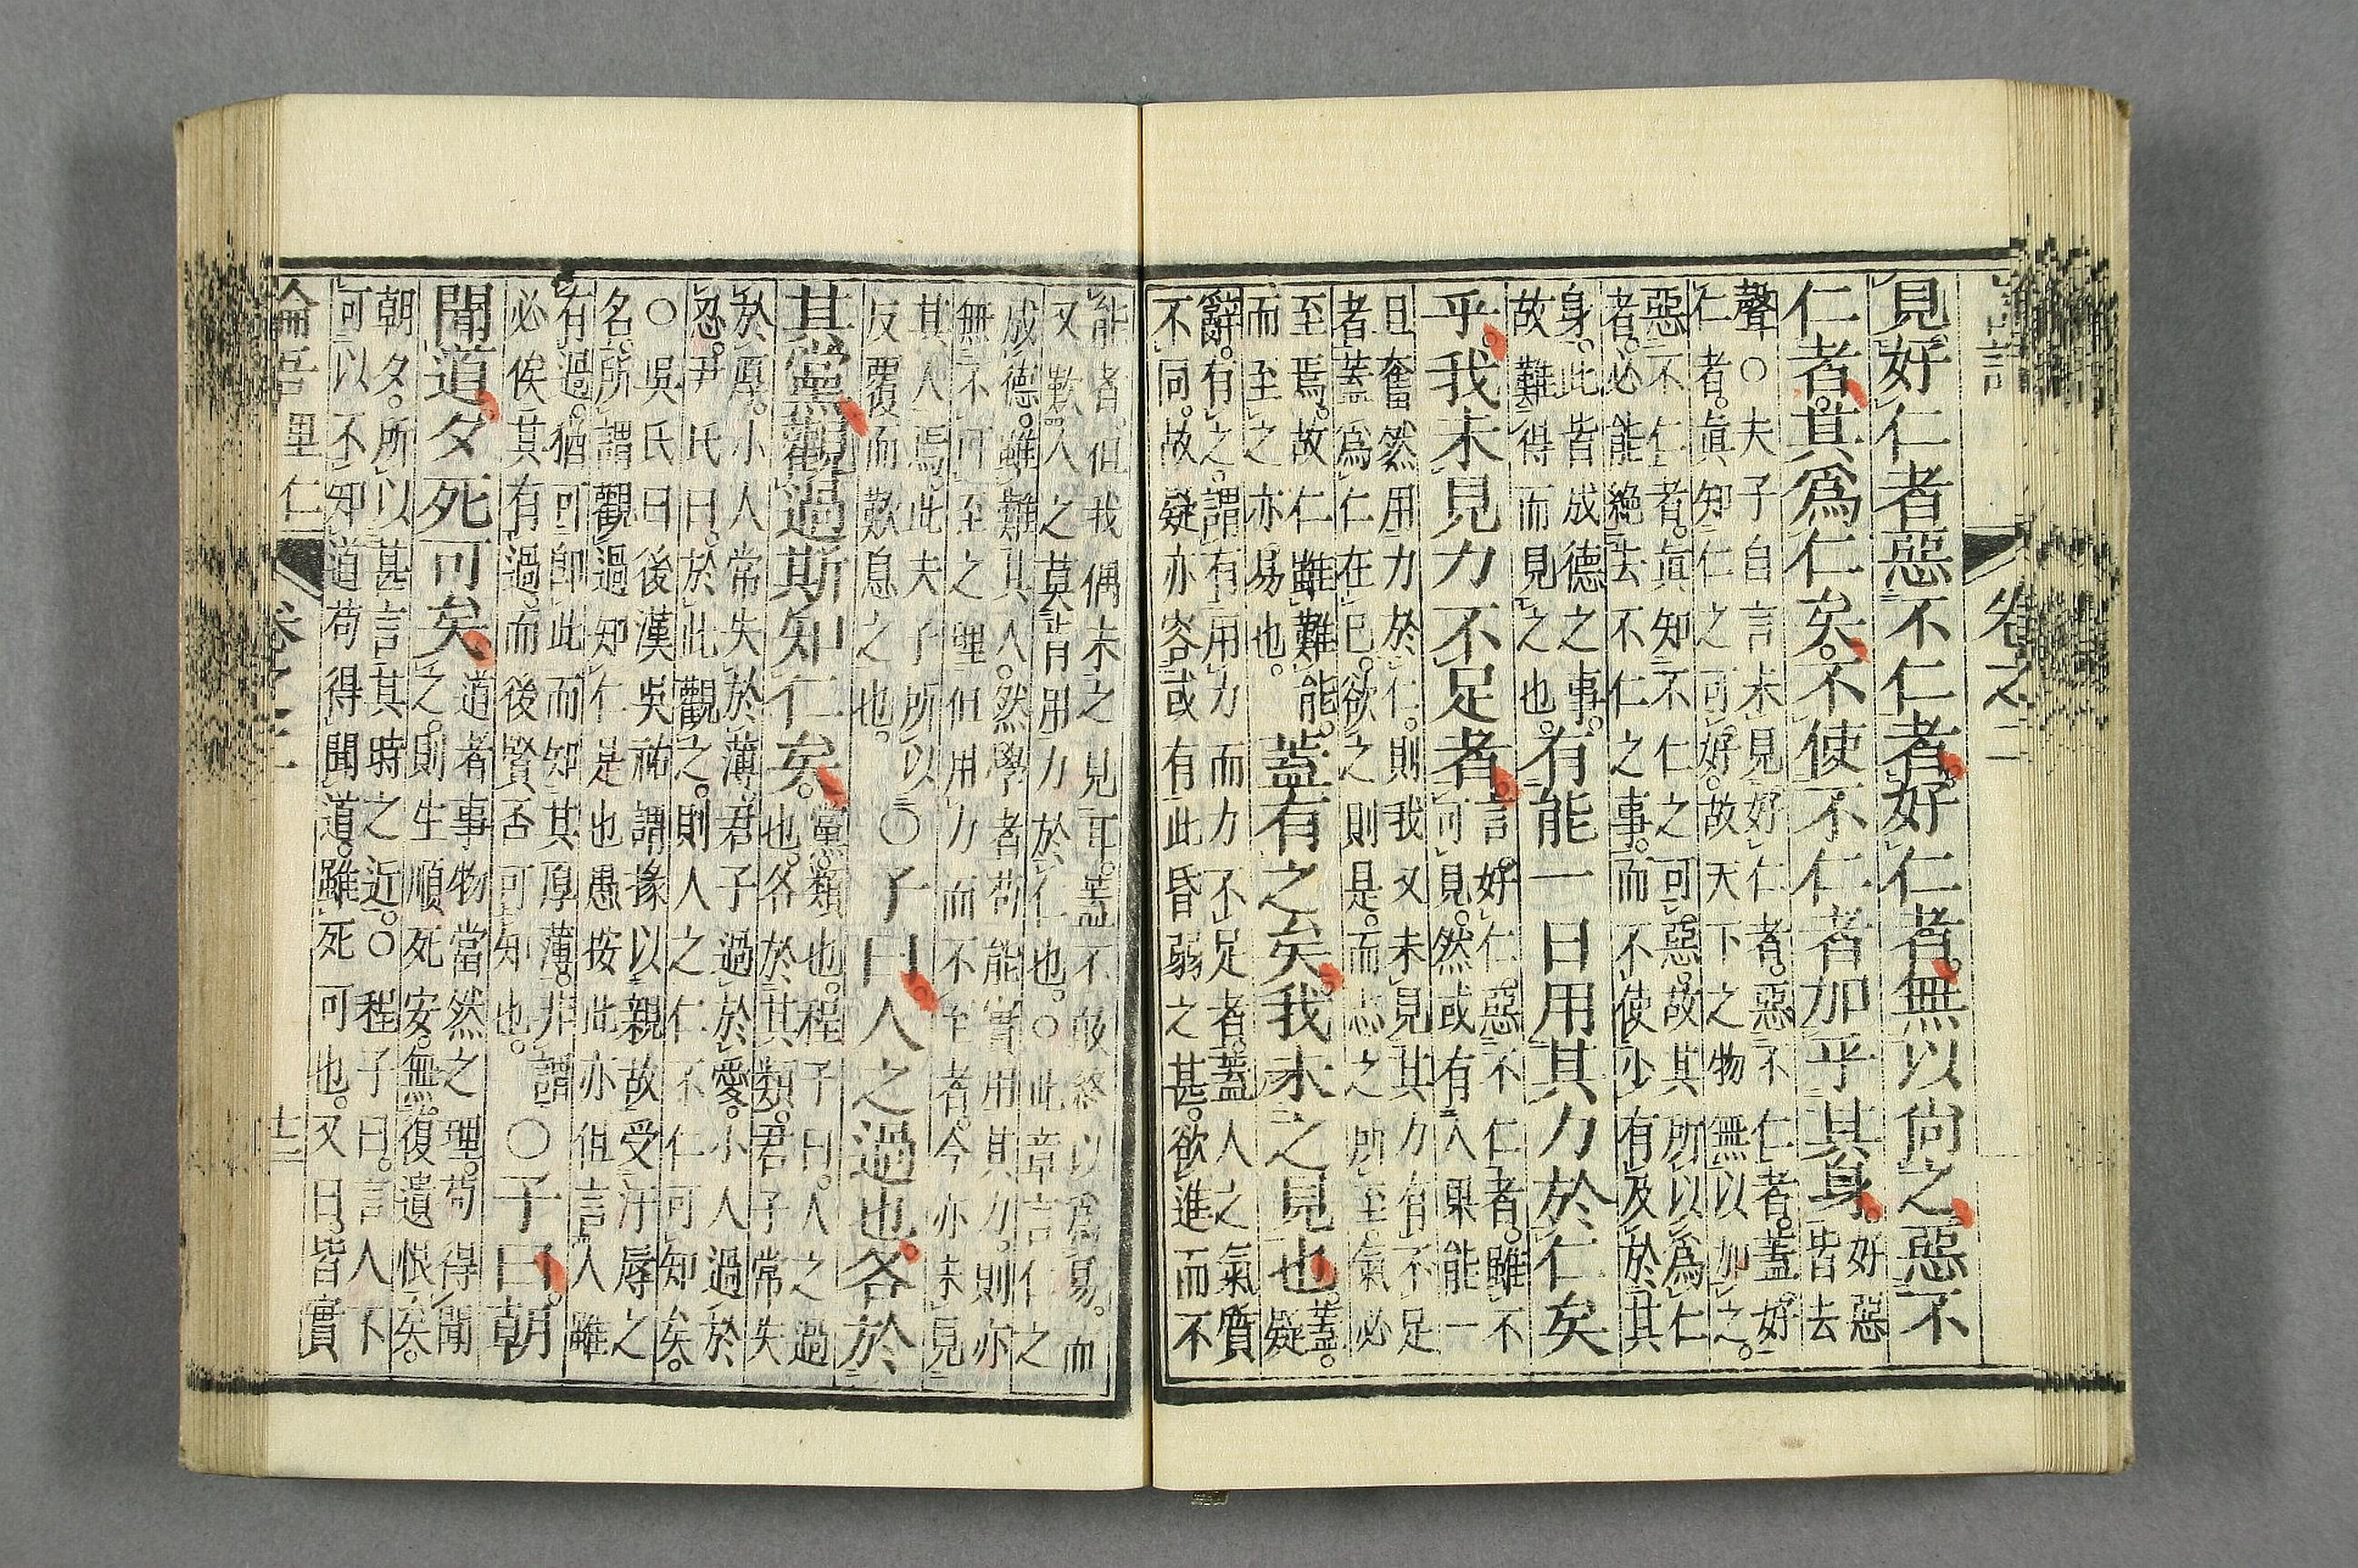 卷之二
見好仁者惡不仁者。好仁者。無以尙之。惡不
仁者。其爲仁矣。不使不仁者加乎其身。好惡
皆去
聲〇夫子自言未見好仁者。惡不仁者。蓋好
仁者。眞知仁之可好。故天下之物無以加之。
惡不仁者。眞知不仁之可惡。故其所以爲仁
者。必能絕去不仁之事。而不使少有及於其
身。此皆成德之事。
故難得而見之也。有能一日用其力於仁矣
乎。我未見力不足者。言好仁。惡不仁者。雖不
可見。然或有人果能一
旦奮然用力於仁。則我又未見其力有不足
者。蓋爲仁在已。欲之則是。而志之所至。氣必
至焉。故仁雖難能。
而至之亦易也。蓋有之矣。我未之見也。蓋。
疑
辭。有之。謂有用力而力不足者。蓋人之氣質
不同。故疑亦容或有此昏弱之甚。欲進而不
能者。但我偶未之見耳。蓋不敢終以爲易。而
又歎人之莫肯用力於仁也。〇此章言仁之
成德。雖難其人。然學者苟能實用其力。則亦
無不可至之理。但用力而不至者。今亦未見
其人焉。此夫子所以
反覆而歎息之也。〇子曰。人之過也。各於
其黨。觀過斯知仁矣。黨。類也。程子曰。人之過
也。各於其類。君子常失
於厚。小人常失於薄。君子過於愛。小人過於
忍。尹氏曰。於此觀之。則人之仁不仁可知矣。
〇吳氏曰後漢吳祐謂掾以親故受汙辱之
名。所謂觀過知仁是也愚按此亦但言人雖
有過。猶可卽此而知其厚薄。非謂
必俟其有過。而後賢否可知也。〇子曰。朝
聞道。夕死可矣。道者事物當然之理。苟得聞
之。則生順死安。無復遺恨矣。
朝夕。所以甚言其時之近。〇程子曰。言人不
可以不知道苟得聞道。雖死可也。又曰皆實
里仁